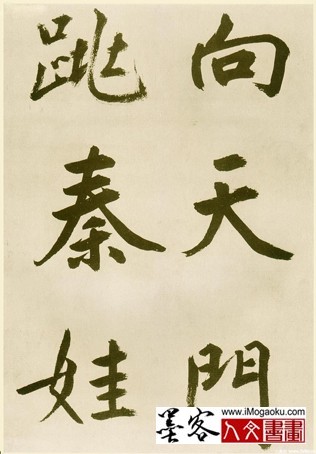 向天門
跳秦娃
www.iMogaoku.com
墨客
人文書畫